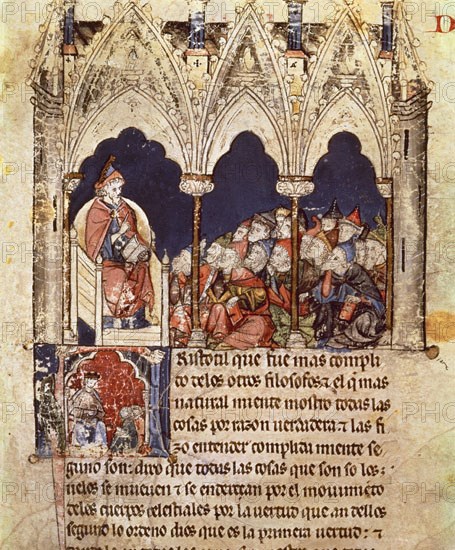 D
Ristotil que fue mas compli
do delos otros filosofos ⁊ el q̃ mas
natural miente mostro todas las
cosas por razon uerdadera ⁊ las fi
zo entender complida miente se
guno son: dixo que todas las cosas que son so los
cielos se mueuen ⁊ se endereçan por el mouimẽto
delos cuerpos celestiales por la uertud que an dellos
segund lo ordeno dios que es la primera uertud: ⁊